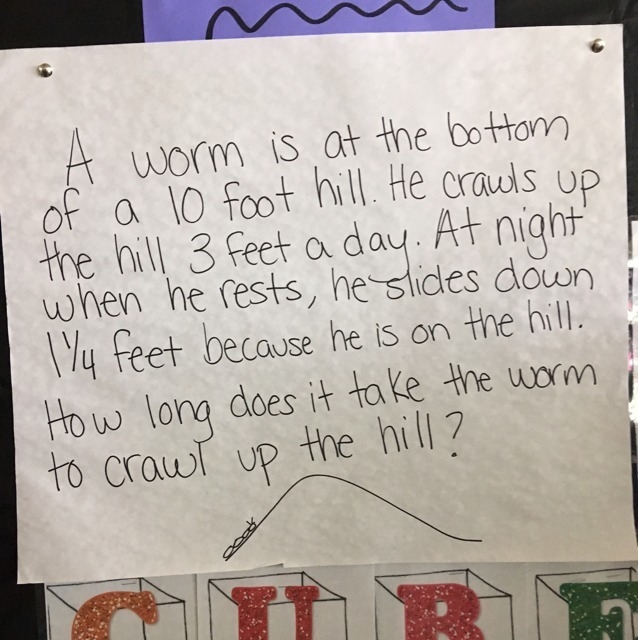 A worm is at the bottom
of a 10 foot hill. He crawls up
the hill 3 feet a day. At night
when he rests, he slides down
1 1/4 feet because he is on the hill.
How long does it take the worm
to crawl up the hill?
C U B E